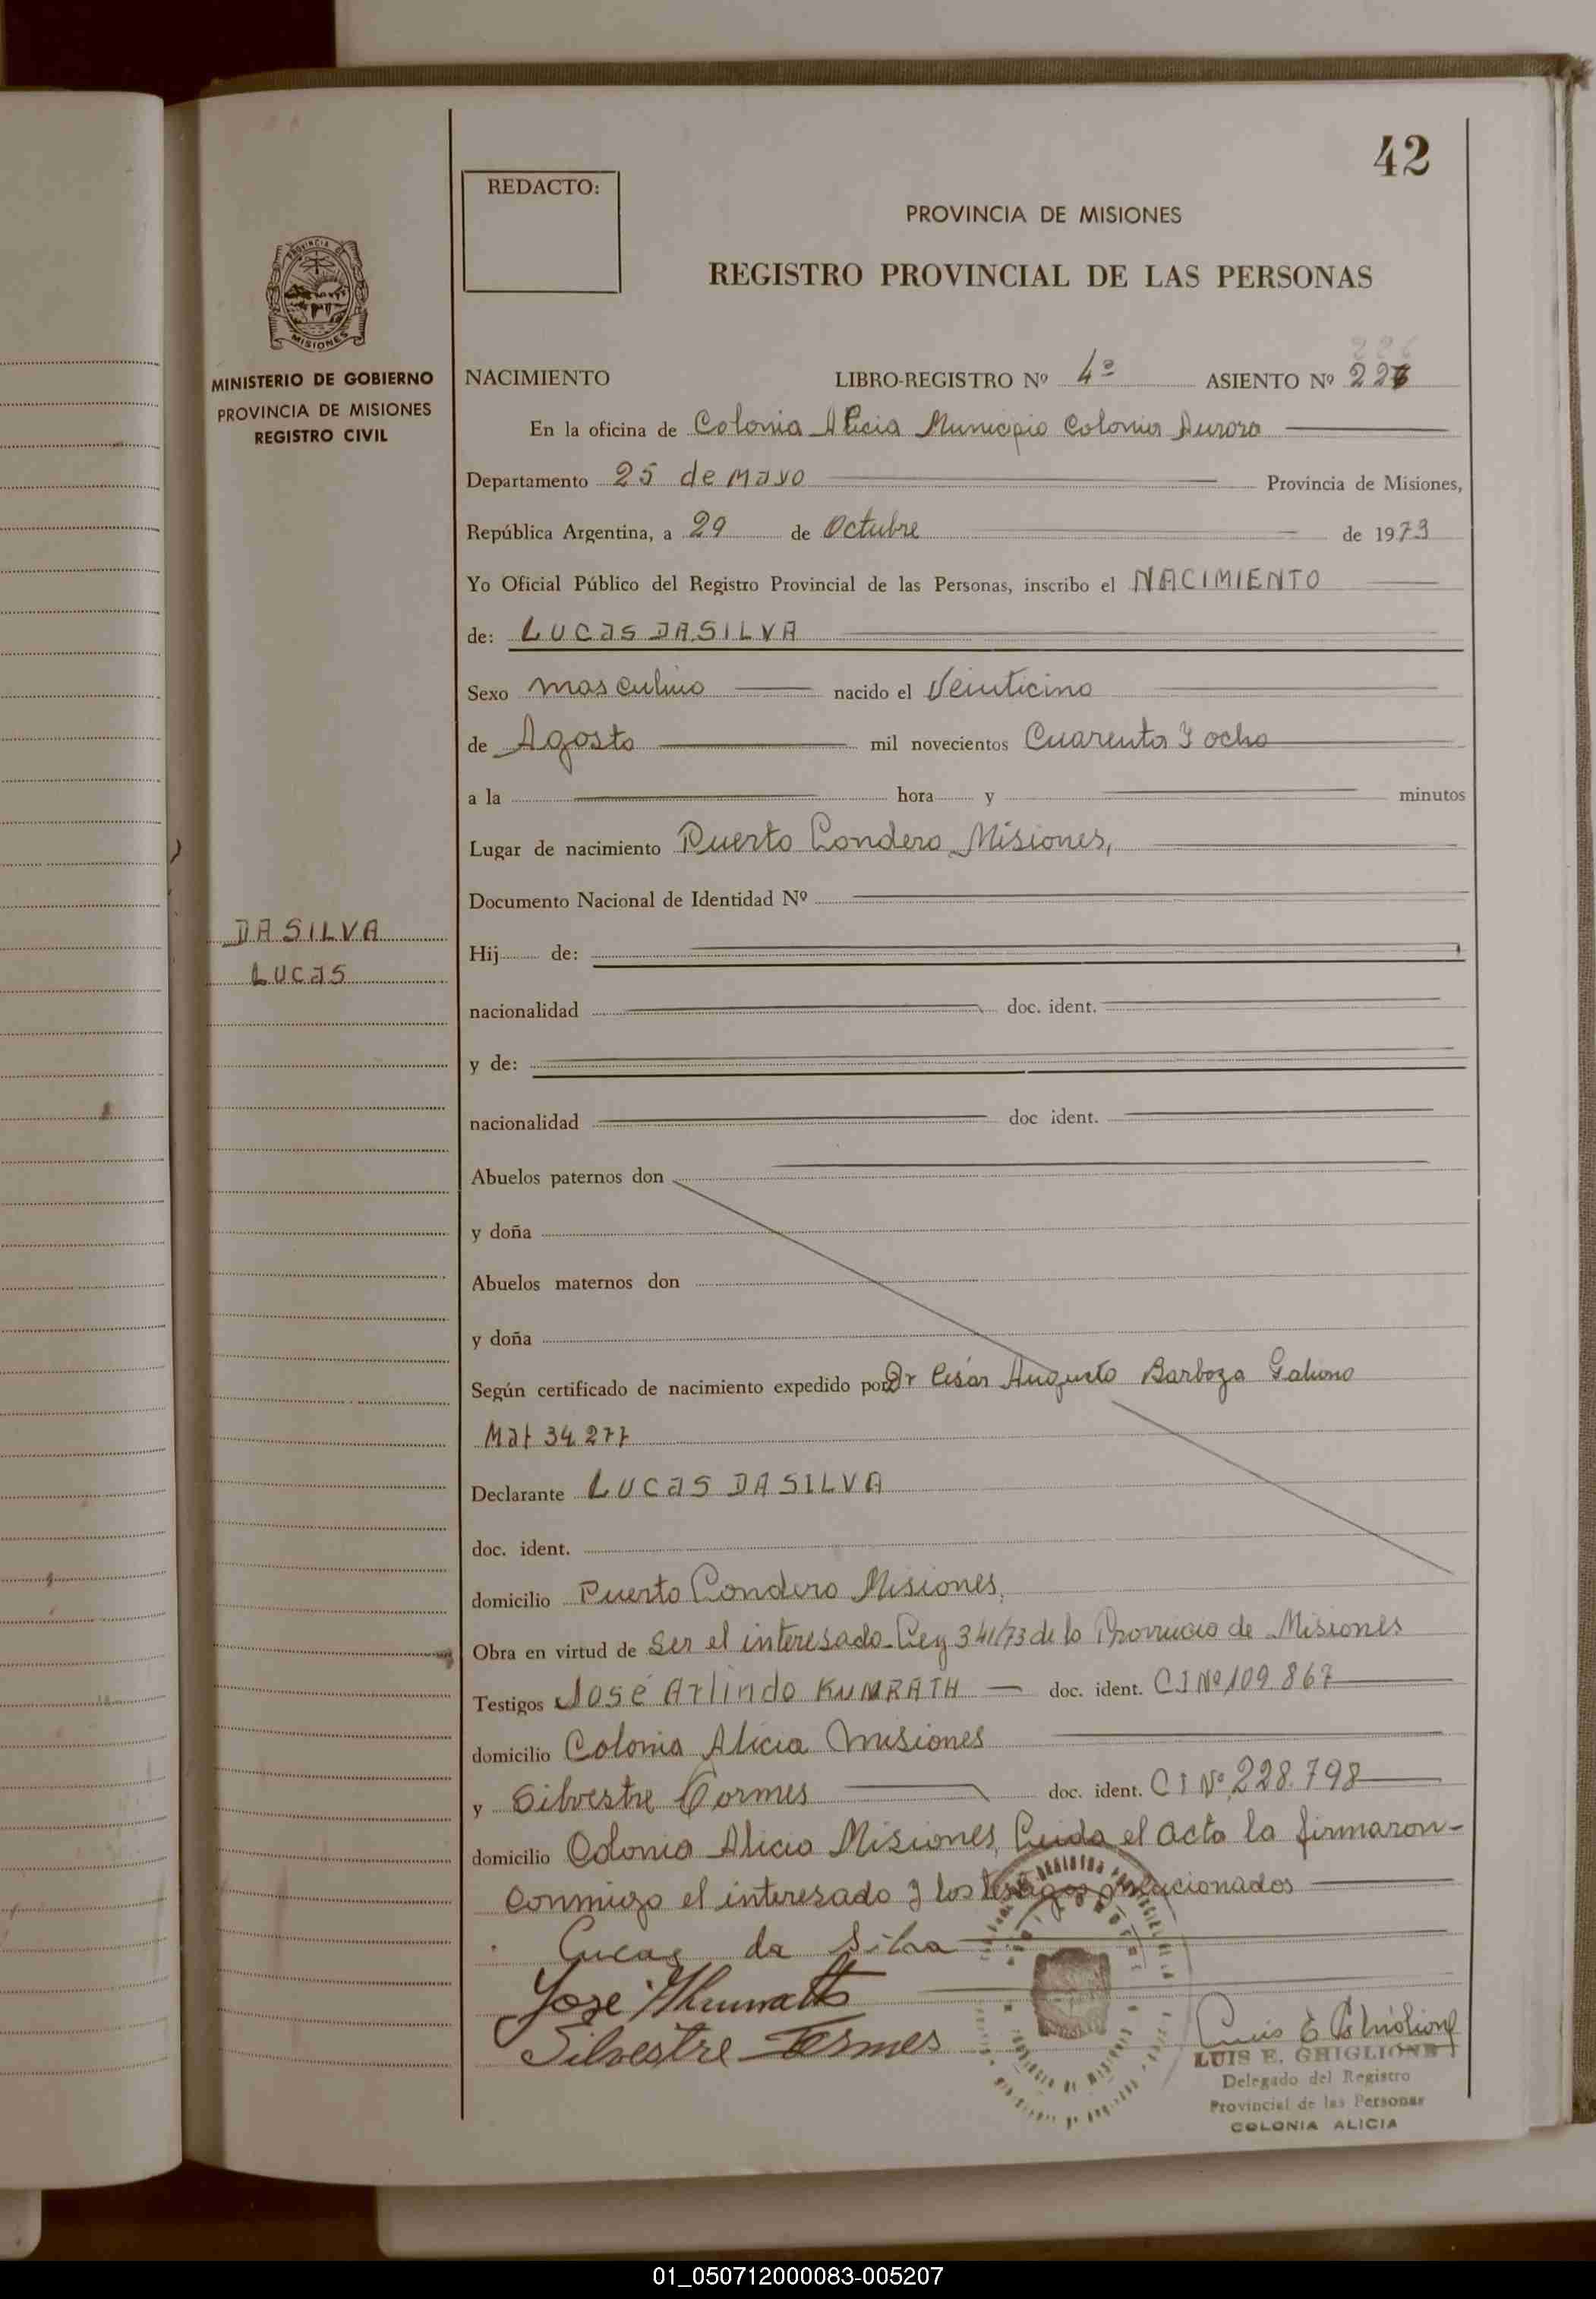 42
REDACTO:
PROVINCIA DE MISIONES
REGISTRO PROVINCIAL DE LAS PERSONAS
MINISTERIO DE GOBIERNO
PROVINCIA DE MISIONES
REGISTRO CIVIL
NACIMIENTO LIBRO-REGISTRO Nº 4º ASIENTO Nº 226
En la oficina de Colonia Alicia Municipio Colonia Aurora
Departamento 25 de Mayo Provincia de Misiones,
República Argentina, a 29 de Octubre de 1973
Yo Oficial Público del Registro Provincial de las Personas, inscribo el NACIMIENTO
de: LUCAS DASILVA
Sexo masculino nacido el Veinticino
de Agosto mil novecientos Cuarenta y ocho
a la hora y minutos
Lugar de nacimiento Puerto Londero Misiones,
Documento Nacional de Identidad Nº
DASILVA
LUCAS
Hij de:
nacionalidad doc. ident.
y de:
nacionalidad doc ident.
Abuelos paternos don
y doña
Abuelos maternos don
y doña
Según certificado de nacimiento expedido por Dr César Augusto Barboza
Mat 34.277
Declarante LUCAS DA SILVA
doc. ident.
domicilio Puerto Londero Misiones,
Obra en virtud de Ser el interesado-Ley 341/73 de la Provincia de Misiones
Testigos José Arlindo KUNRATH doc. ident. CI Nº 109 867
domicilio Colonia Alicia Misiones
y Silvestre Tormes doc. ident. CI Nº 228.798
domicilio Colonia Alicia Misiones, Leida el acta la firmaron-
conmigo el interesado y los testigos relacionados
Lucas da Silva
José Kunrath
Silvestre Tormes
Luis E Ghiglione
LUIS E. GHIGLIONE
Delegado del Registro
Provincial de las Personas
COLONIA ALICIA
01_050712000083-005207